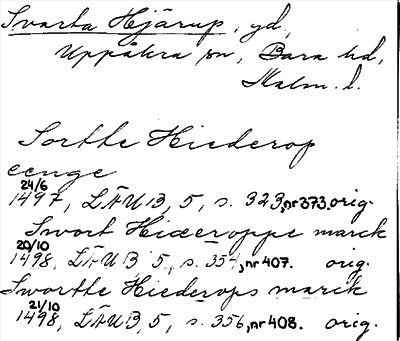 Svarta Hjärup, yd,
Uppåkra sn, Bara hd,
Malm. l.
Sortte Hiederop
eenge
24/6
1497, LÄUB, 5, s. 323, nr 373. orig.
Swort Hiæeroppe marck
20/10
1498, LÄUB 5, s. 354, nr 407. orig.
Swortte Hiederops marck
21/10
1498, LÄUB, 5, s. 356, nr 408. orig.